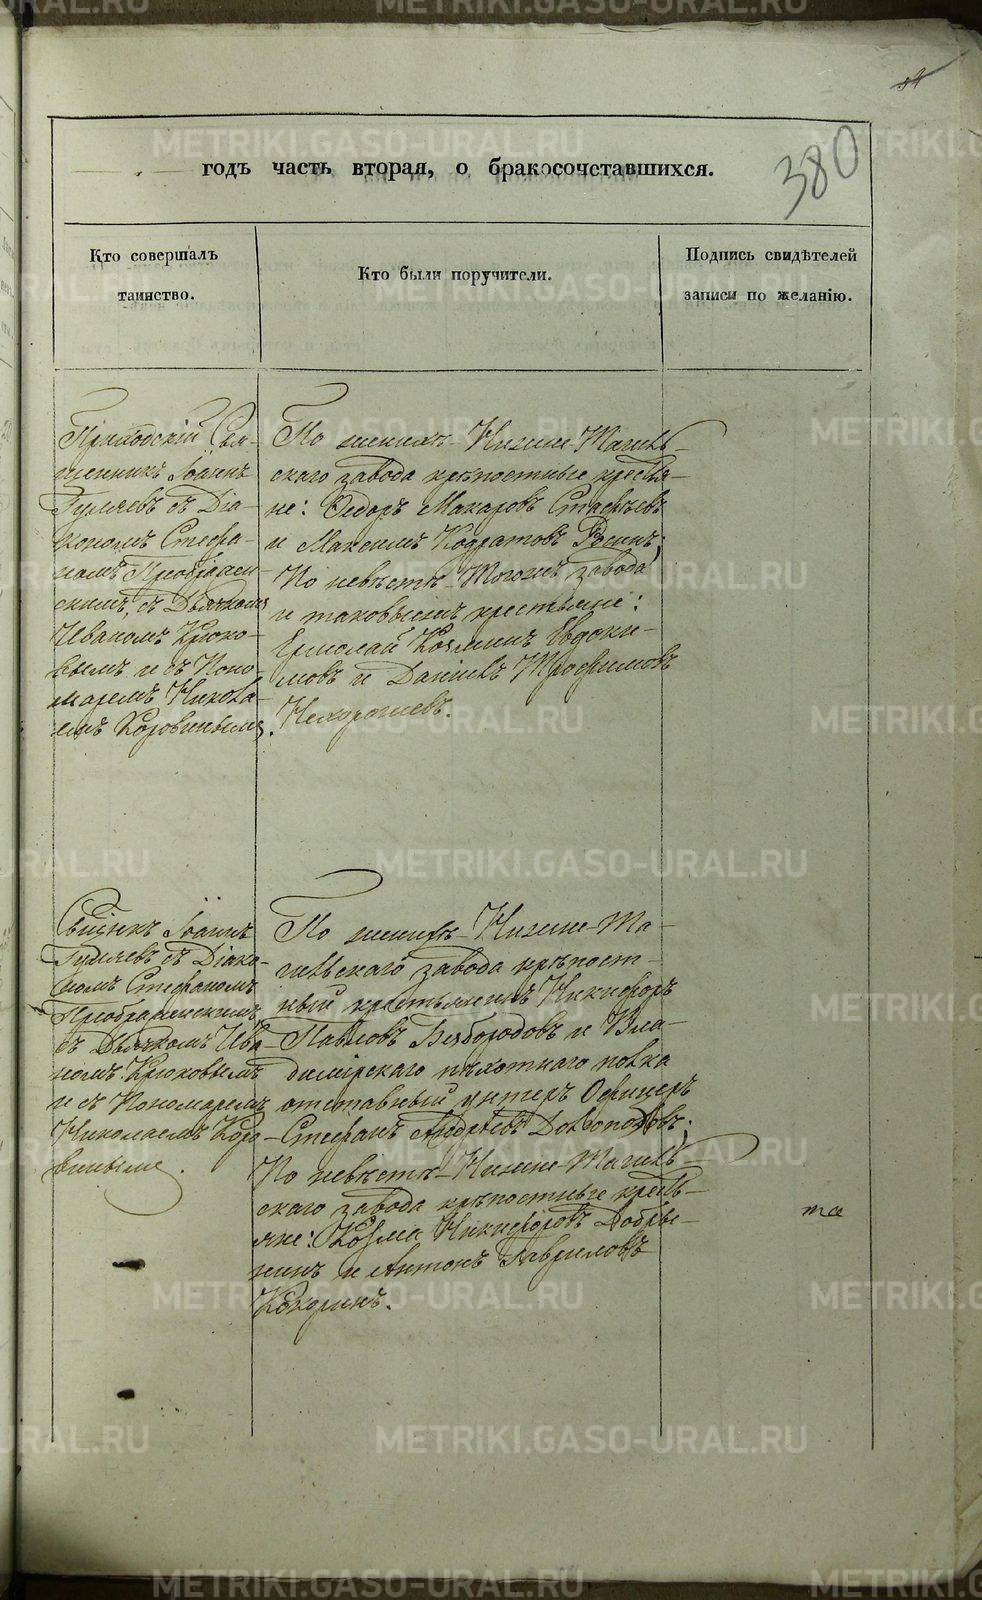 54
380
годъ часть вторая, о бракосочетавшихся.
Кто совершалъ
таинство.
Кто были поручители.
Подпись свидѣтелей
записи по желанію.
Приходскій Свя-
щенникъ Іоаннъ
Гуляевъ съ Діа-
кономъ Стефа-
номъ Преображен-
скимъ, съ Дьячкомъ
Иваномъ Крюко-
вымъ и съ Поно-
маремъ Никола-
емъ Коровинымъ.
По женихѣ Нижне-Тагиль-
скаго завода крѣпостные крестья-
не: Ѳедоръ Макаровъ
и Максимъ Кодратовъ
По невѣстѣ тогожъ завода
и таковыежъ крестьяне:
Ермолай Козминъ Евдоки-
мовъ и Даніилъ Трофимовъ
Нехорошевъ.
Свщнкъ Іоаннъ
Гуляевъ съ Діако-
номъ Стефаномъ
Преображенскимъ,
съ Дьячкомъ Ива-
номъ Крюковымъ
и съ Пономаремъ
Николаемъ Коро-
винымъ.
По женихѣ Нижне-Та-
гильскаго завода крѣпост-
ный крестьянинъ Никифоръ
Павловъ Безбородовъ и Вла-
димірскаго пѣхотнаго полка
отставный унтеръ Офицеръ
Стефанъ Андреевъ Долгополовъ;
По невѣстѣ Нижне-Тагиль-
скаго завода крѣпостные кресть-
яне: Козма Никифоровъ Добры-
нинъ и Антонъ Гавриловъ
Кокоринъ.
та
METRIKI.GASO-URAL.RU